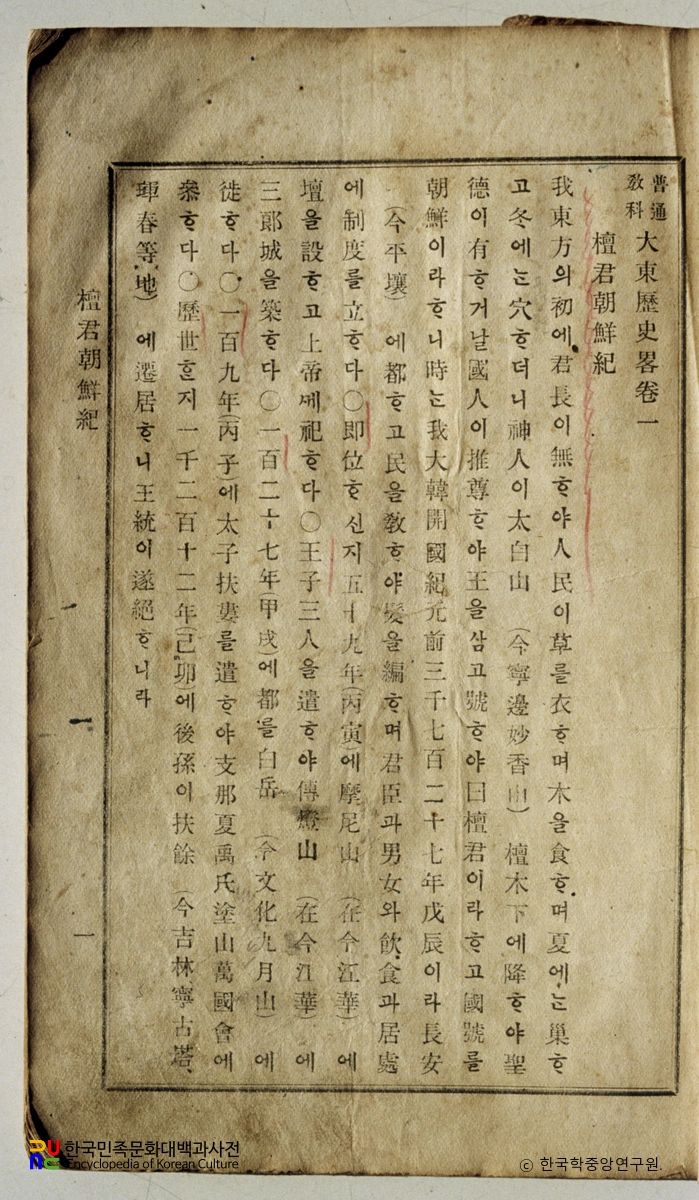 普通
敎科
大東歷史畧卷一
檀君朝鮮紀
我東方의初에君長이無ᄒᆞ야人民이草를衣ᄒᆞ며木을食ᄒᆞ며夏에ᄂᆞᆫ巢ᄒᆞ
고冬에ᄂᆞᆫ穴ᄒᆞ더니神人이太白山(今寧邊妙香山)檀木下에降ᄒᆞ야聖
德이有ᄒᆞ거날國人이推尊ᄒᆞ야王을삼고號ᄒᆞ야曰檀君이라ᄒᆞ고國號를
朝鮮이라ᄒᆞ니時ᄂᆞᆫ我大韓開國紀元前三千七百二十七年戊辰이라長安
(今平壤)에都ᄒᆞ고民을敎ᄒᆞ야髮을編ᄒᆞ며君臣과男女와飮食과居處
에制度를立ᄒᆞ다○卽位ᄒᆞ신지五十九年(丙寅)에摩尼山(在今江華)에
壇을設ᄒᆞ고上帝ᄭᅦ祀ᄒᆞ다○王子三人을遣ᄒᆞ야傳燈山(在今江華)에
三郞城을築ᄒᆞ다○一百二十七年(甲戌)에都를白岳(今文化九月山)에
徙ᄒᆞ다○一百九年(丙子)에太子扶婁를遣ᄒᆞ야支那夏禹氏塗山萬國會에
叅ᄒᆞ다○歷世ᄒᆞᆫ지一千二百十二年(己卯)에後孫이扶餘(今吉林寧古塔、
琿春等地)에遷居ᄒᆞ니王統이遂絕ᄒᆞ니라
檀君朝鮮紀
一
한국민족문화대백과사전
Encyclopedia of Korean Culture
ⓒ 한국학중앙연구원.